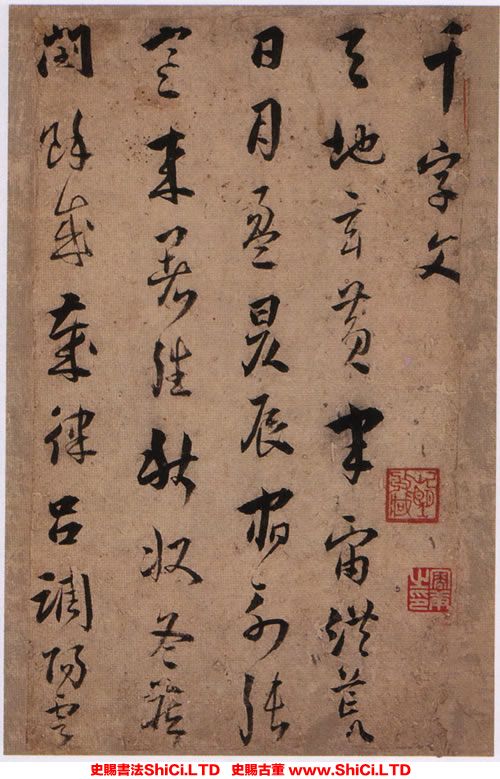 千字文
天地玄黄宇宙洪荒
日月盈昃辰宿列張
寒来暑往秋收冬藏
閏餘成歲律吕調陽雲
史賜書法ShiCi.LTD 史賜古董 www.ShiCi.LTD